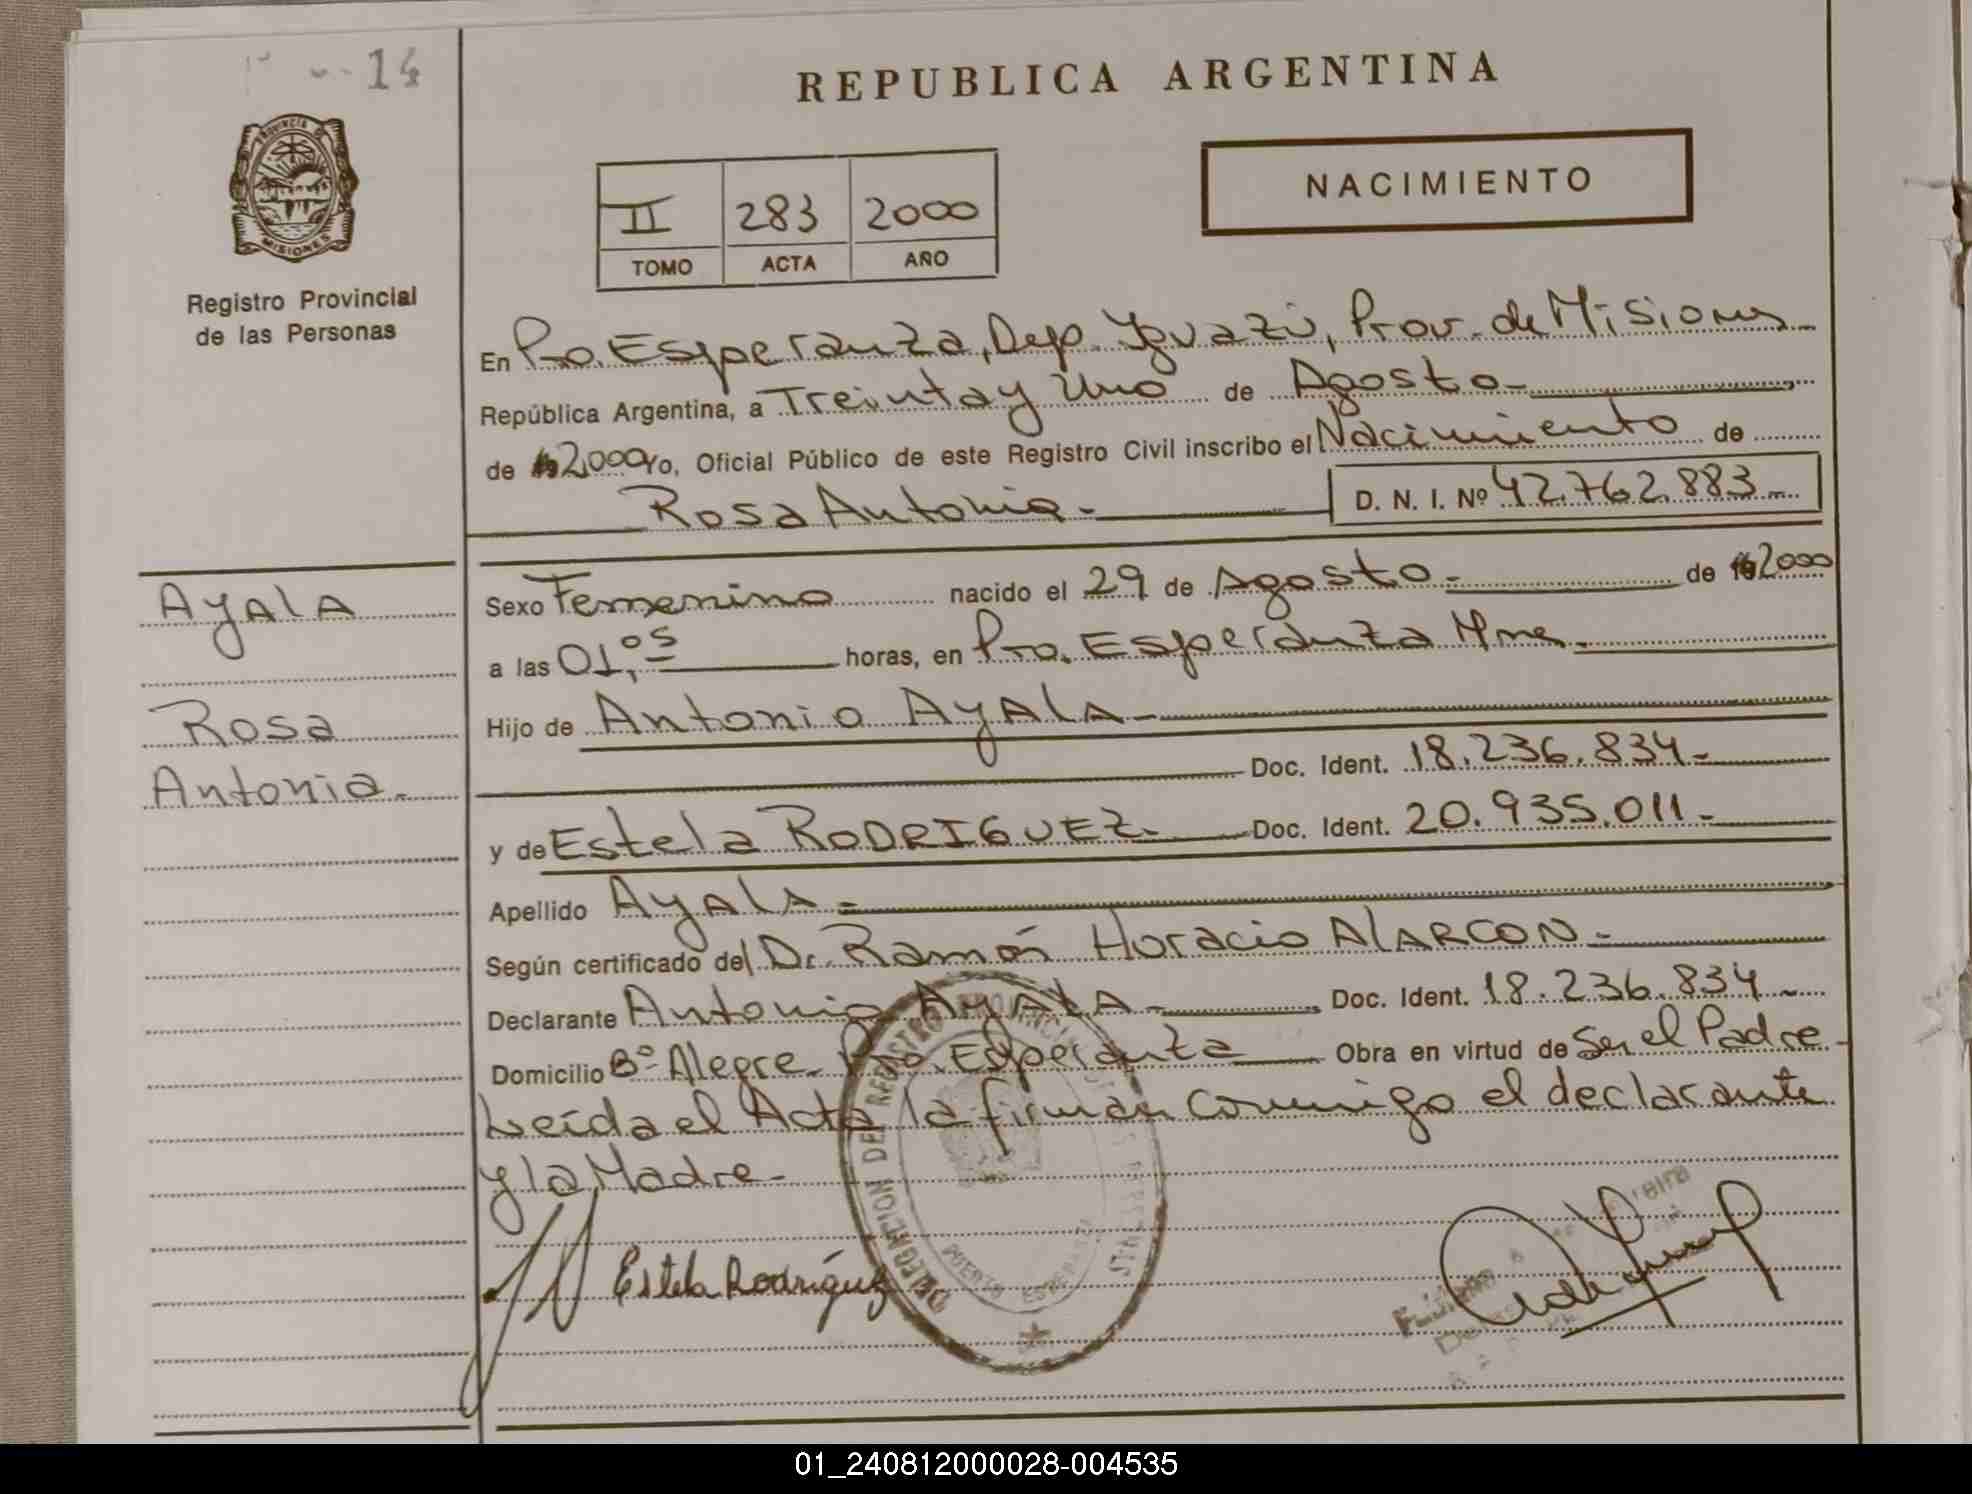 14
REPUBLICA ARGENTINA
PROVINCIA DE
MISIONES
Registro Provincial
de las Personas
II 283 2000
TOMO ACTA AÑO
NACIMIENTO
En Pto. Esperanza, Dep. Iguazú, Prov. de Misiones
República Argentina, a Treinta y Uno de Agosto
de 2000 yo, Oficial Público de este Registro Civil inscribo el Nacimiento de
Rosa Antonia.- D. N. I. Nº 42.762.883-
Ayala
Rosa
Antonia.-
Sexo Femenino nacido el 29 de Agosto.- de 2000
a las 01,05 horas, en Pto. Esperanza Mnes.
Hijo de Antonio Ayala-
Doc. Ident. 18.236.834-
y de Estela RODRIGUEZ- Doc. Ident. 20.935.011.-
Apellido Ayala.-
Según certificado del Dr. Ramón Horacio AlARCON-
Declarante Antonio Ayala- Doc. Ident. 18.236.834-
Domicilio Bº Alegre Pto. Esperanza Obra en virtud de Ser el Padre-
Leída el Acta la firman conmigo el declarante
y la Madre-
Estela Rodríguez
DELEGACION DEL REGISTRO PROVINCIAL
PUERTO ESPERANZA
01_240812000028-004535